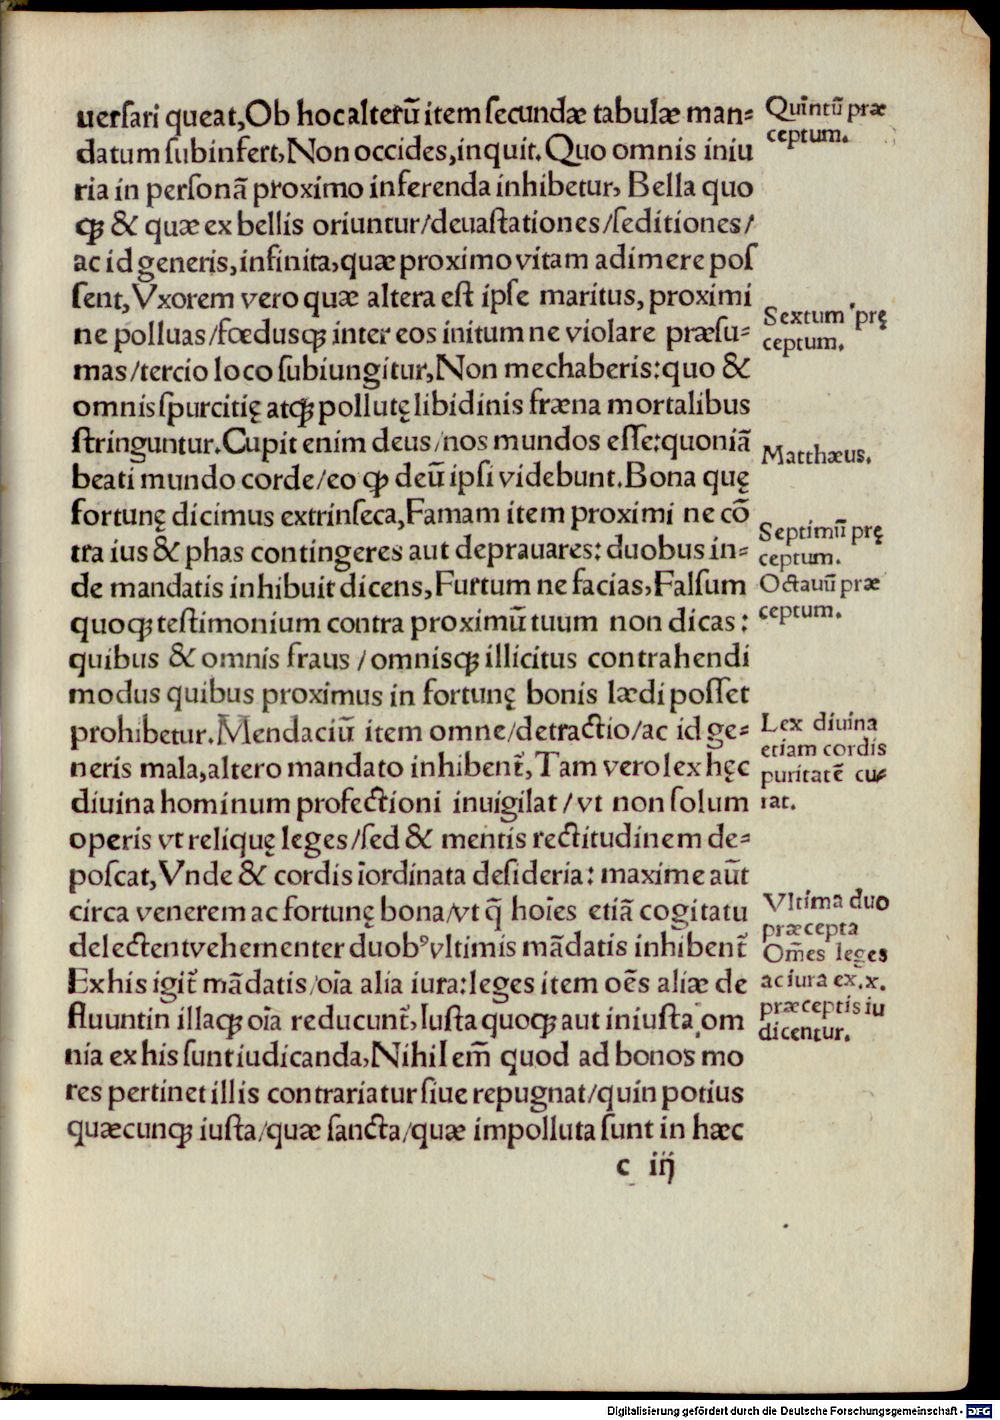 uerſari queat,Ob hoc alterū item ſecundæ tabulæ man⸗
datum ſubinfert,Non occides,inquit.Quo omnis iniu
ria in perſonā proximo inferenda inhibetur, Bella quo
qꝫ & quæ ex bellis oriuntur/deuaſtationes/ſeditiones/
ac id generis,infinita,quæ proximo vitam adimere poſ
ſent,Vxorem vero quæ altera eſt ipſe maritus,proximi
ne polluas/fœdusqꝫ inter eos initum ne violare præſu⸗
mas/tercio loco ſubiungitur,Non mechaberis:quo &
omnis ſpurcitię atqꝫ pollutę libidinis fræna mortalibus
ſtringuntur.Cupit enim deus/nos mundos eſſe:quoniā
beati mundo corde/eo ꝙ deū ipſi videbunt.Bona quę
fortunę dicimus extrinſeca,Famam item proximi ne cō
tra ius & phas contingeres aut deprauares:duobus in⸗
de mandatis inhibuit dicens,Furtum ne facias,Falſum
quoqꝫ teſtimonium contra proximū tuum non dicas:
quibus & omnis fraus /omnisqꝫ illicitus contrahendi
modus quibus proximus in fortunę bonis lædi poſſet
prohibetur.Mendaciū item omne/detractio/ac id ge⸗
neris mala,altero mandato inhibent̃,Tam vero lex hęc
diuina hominum profectioni inuigilat/vt non ſolum
operis vt reliquę leges/ſed & mentis rectitudinem de⸗
poſcat,Vnde & cordis īordinata deſideria: maxime aūt
circa venerem ac fortunę bona/vt q̄ hoīes etiā cogitatu
delectent vehementer duobꝰ vltimis mādatis inhibent̃
Ex his igit̃ mādatis/oīa alia iura:leges item oēs aliæ de
fluunt in illaqꝫ oīa reducunt̃,Iuſta quoqꝫ aut iniuſta om
nia ex his ſunt iudicanda,Nihil em̄ quod ad bonos mo
res pertinet illis contrariatur ſiue repugnat/quin potius
quæcunqꝫ iuſta/quæ ſancta/quæ impolluta ſunt in hæc
c iij
Quintū præ
ceptum.
Sextum prę
ceptum.
Matthæus.
Septimū prę
ceptum.
Octauū præ
ceptum.
Lex diuina
etiam cordis
puritatē cu⸗
rat.
Vltima duo
præcepta
Om̄es leges
ac iura ex.x.
præceptis iu
dicentur.
Digitalisierung gefördert durch die Deutsche Forschungsgemeinschaft - DFG